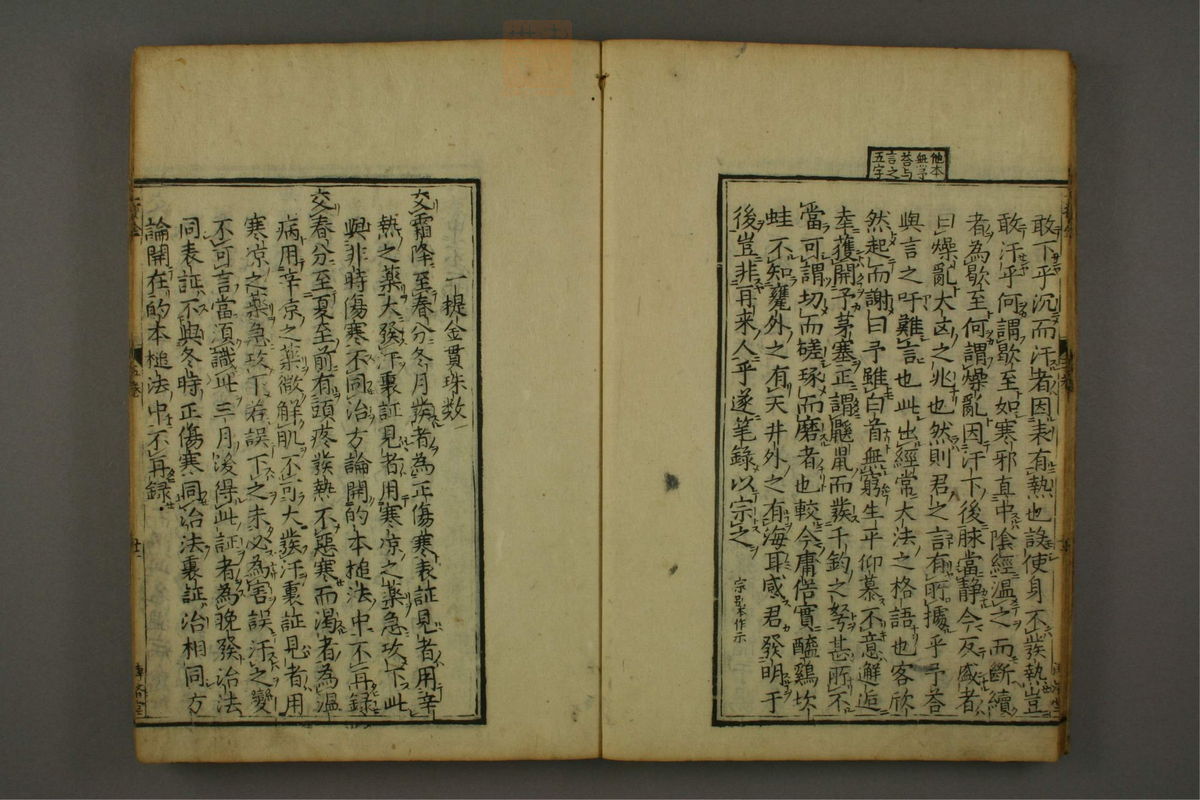 他本
無予
荅与
言之
五字
敢下乎沉而汗者因表有熱也設使身不發熱豈
敢汗乎何謂歇至如寒邪直中陰經温之而斷續
者為歇至何謂燥亂因汗下後脉當静今反盛者
曰燥亂大凶之兆也然則君之言有所據乎予荅
與言之吁難言也此出經常大法之格語也客欣
然起而謝曰予雖白首無窮生平仰慕不意邂逅
幸獲開予茅塞正謂鼷鼠而發千鈞之弩甚所不
當可謂切而磋琢而磨者也較今庸俗實醯鷄坎
蛙不知甕外之有天井外之有海耳感君發明于
後豈非再来人乎遂笔錄以宗之
宗別本作示
一提金貫珠数
交霜降至春分冬月發者為正傷寒表証見者用辛
熱之薬大發汗裏証見者用寒凉之薬急攻下此
與非時傷寒不同治方論開的本搥法中不再録
交春分至夏至前有頭疼發熱不惡寒而渴者為温
病用辛凉之薬微解肌不可大發汗裏証見者用
寒凉之薬急攻下若誤下之未必為害誤汗之變
不可言當須識此三月後得此証者為晚發治法
同表証不與冬時正傷寒同治法裏証治相同方
論開在的本槌法中不再録